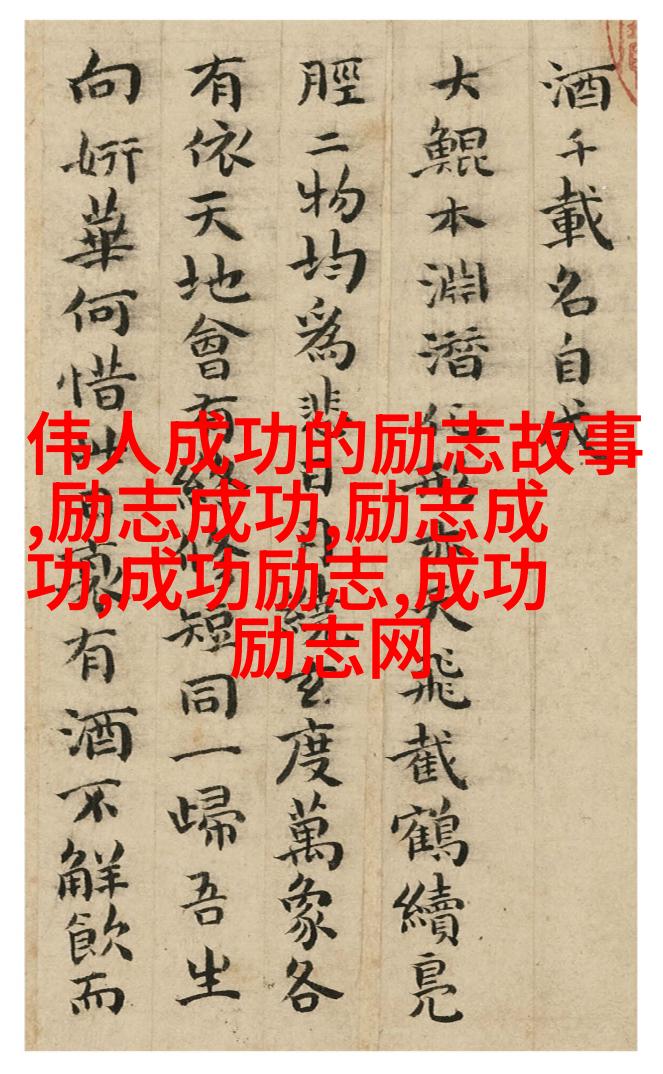 酒千載名自
大鯤本淵潛飛截鶴續鳧
脛二物均為悲日月繞玄度萬象各
有依天地會有終修短同一歸吾生
向妍華何惜此有酒不解飲而
伟人成功的励志故事
,励志成功,励志成
功,成功励志,成功
励志网